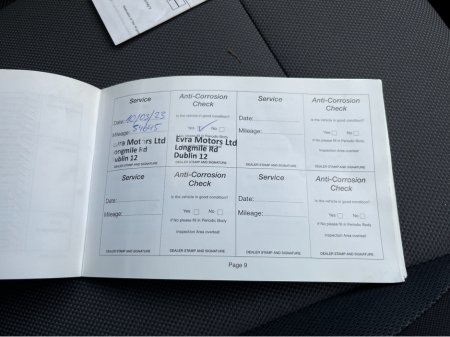 Service
Date: 10/03/23
Mileage: 54645
Evra Motors Ltd
Longmile Rd
Dublin 12
DEALER STAMP AND SIGNATURE
Anti-Corrosion
Check
Is the vehicle in good condition?
Yes No
Evra Motors Ltd
Longmile Rd
Dublin 12
DEALER STAMP AND SIGNATURE
Service
Date:
Mileage:
DEALER STAMP AND SIGNATURE
Anti-Corrosion
Check
Is the vehicle in good condition?
Yes No
If No please fill in Periodic Body
Inspection Area overleaf
DEALER STAMP AND SIGNATURE
Service
Date:
Mileage:
DEALER STAMP AND SIGNATURE
Anti-Corrosion
Check
Is the vehicle in good condition?
Yes No
If No please fill in Periodic Body
Inspection Area overleaf
DEALER STAMP AND SIGNATURE
Service
Date:
Mileage:
DEALER STAMP AND SIGNATURE
Anti-Corrosion
Check
Is the vehicle in good condition?
Yes No
If No please fill in Periodic Body
Inspection Area overleaf
DEALER STAMP AND SIGNATURE
Page 9